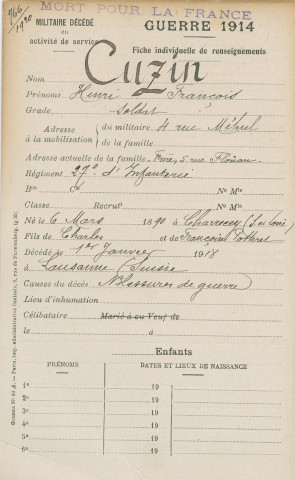 766
1920
MORT POUR LA FRANCE
MILITAIRE DÉCÉDÉ
en
activité de service
GUERRE 1914
Fiche individuelle de renseignements
Nom Cuzin
Prénoms Henri François
Grade Soldat
Adresse à la mobilisation du militaire 4 rue Méhul
de la famille
Adresse actuelle de la famille Frère, 5 rue
Régiment 27e d'Infanterie
Bon Cie No Mle
Classe Recrut No Mle
Né le 6 Mars 1890 à Charrecey (S et Loire)
Fils de Charles et de Françoise Pothret
Décédé le 1er Janvier 1918
à Lausanne (Suisse)
Causes du décès Blessures de guerre
Lieu d'inhumation
Célibataire Marié à ou Veuf de
le à
Enfants
PRÉNOMS DATES ET LIEUX DE NAISSANCE
1o 19
2o 19
3o 19
4o 19
5o 19
6o 19